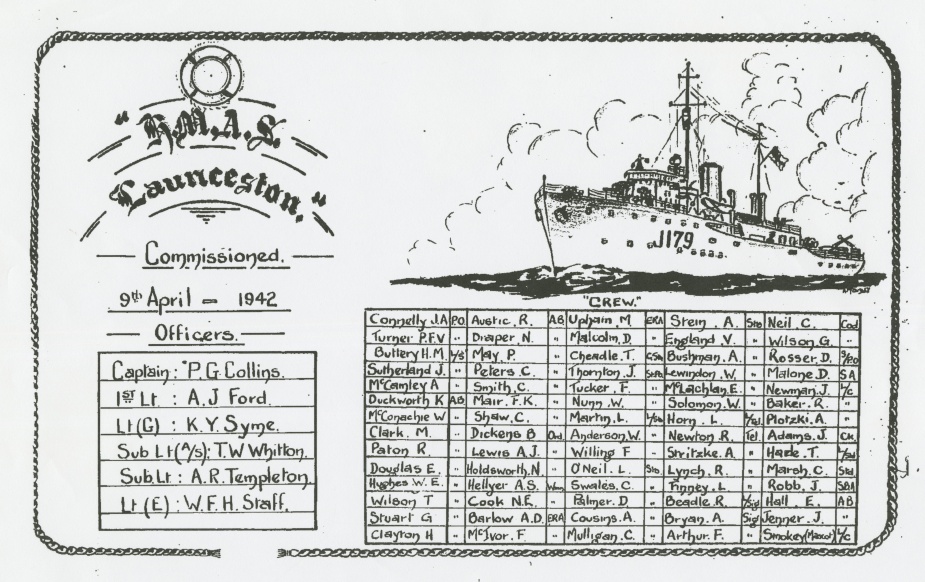 "H.M.A.S.
Launceston."
Commissioned.
9th April - 1942
Officers.
Captain: P.G Collins.
1ST Lt : A.J Ford.
Lt(G) : K.Y. Syme.
Sub Lt(A/s): T.W Whitton.
Sub.Lt : A.R. Templeton.
Lt (E) : W.F.H. Staff.
J179
"CREW."
Connelly J.A P.O. Austic. R. A.B Upham. M ERA Stein. A. Sto Neil. C. Cod
Turner P.F.V " Draper. N. " Malcolm. D. " England V. " Wilson. G. "
Buttery H.M. L/S May. P. " Cheadle. T. Bushman. A. " Rosser. D. S/PO
Sutherland J. " Peters. C. " Thornton. J Lewindon. W. " Malone. D. SA
McCamley A " Smith. C. " Tucker. F. " McLachlan. E. " Newman. J. L/C
Duckworth K AB. Mair. F.K. " Nunn. W " Solomon. W. " Baker. R. "
McConachie W " Shaw. C. " Martin. L. Horn. L. Plotzki. A. "
Clark. M. " Dickens B Ord. Anderson. W. " Newton. R Tel. Adams. J. CK.
Paton R. " Lewis A.J " Willing F " Stritzke. A. " Hade. T.
Douglas E. " Holdsworth. N. " O'Neil. L. Sto. Lynch. R. " Marsh. C. Std
Hughes W. E. " Hellyer A.S. Swales. C. " Finney. L " Robb. J. SBA
Wilson T " Cook N.E. " Palmer. D " Beadle. R. L/Sig Hall. E. AB
Stuart G " Barlow A.D. ERA Cousins. A. " Bryan. A. Sig Jenner. J. "
Clayton H " McIvor. F " Mulligan. C. " Arthur. F. " Smokey (Mascot) L/C